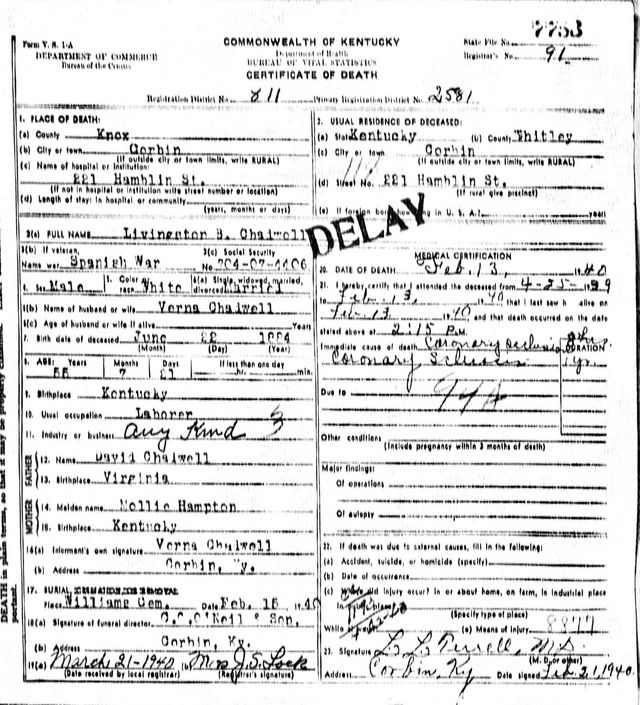 7753
Form V. S. 1-A
DEPARTMENT OF COMMERCE
Bureau of the Census
COMMONWEALTH OF KENTUCKY
Department of Health
BUREAU OF VITAL STATISTICS
CERTIFICATE OF DEATH
State File No.
Registrar's No. 91
Registration District No. 811 Primary Registration District No. 2581
1. PLACE OF DEATH:
(a) County Knox
(b) City or town Corbin
(If outside city or town limits, write RURAL)
(c) Name of hospital or institution:
221 Hamblin St.
(If not in hospital or institution write street number or location)
(d) Length of stay: In hospital or community
(years, months or days)
2. USUAL RESIDENCE OF DECEASED:
(a) State Kentucky (b) County Whitley
(c) City or town Corbin
(If outside city or town limits, write RURAL)
(d) Street No. 221 Hamblin St.
(If rural give precinct)
(e) If foreign born, how long in U. S. A.? years
DELAY
3(a) FULL NAME Livingston B. Chalwell
3(b) If veteran,
Name war Spanish War
3(c) Social Security
No.
4. Sex Male 5. Color or race White 6(a) Single, widowed, married, divorced Married
6(b) Name of husband or wife Verna Chalwell
6(c) Age of husband or wife if alive Years
7. Birth date of deceased June 22 1884
(Month) (Day) (Year)
8. AGE: Years Months Days If less than one day
55 7 21 hr. min.
9. Birthplace Kentucky
10. Usual occupation Laborer
11. Industry or business Any Kind
FATHER
12. Name David Chalwell
13. Birthplace Virginia
MOTHER
14. Maiden name Mollie Hampton
15. Birthplace Kentucky
16(a) Informant's own signature Verna Chalwell
(b) Address Corbin, Ky.
17. BURIAL
Place Williams Cem. Date Feb. 15 1940
18(a) Signature of funeral director O'Neil & Son,
(b) Address Corbin, Ky.
19(a) March 21-1940 (b) Mrs J. S. Lock
(Date received by local registrar) (Registrar's signature)
MEDICAL CERTIFICATION
20. DATE OF DEATH Feb. 13, 1940
21. I hereby certify that I attended the deceased from 4-25-1939
to Feb 13, 1940 that I last saw h alive on
Feb 13 1940 and that death occurred on the date
stated above at 2:15 P.M.
DURATION
Immediate cause of death Coronary Occlusion 2 hrs.
Coronary Sclerosis 1 yr.
Due to 94A
Other conditions
(Include pregnancy within 3 months of death)
Major findings:
Of operations
Of autopsy
22. If death was due to external causes, fill in the following:
(a) Accident, suicide, or homicide (specify)
(b) Date of occurrence
(c) Where did injury occur? In or about home, on farm, in industrial place
(Specify type of place)
While at work? (e) Means of injury
23. Signature L. L. Terrell, M.D.
(M. D. or other)
Address Corbin, Ky Date signed Feb. 21, 1940.
DEATH in plain terms, so that it may be properly